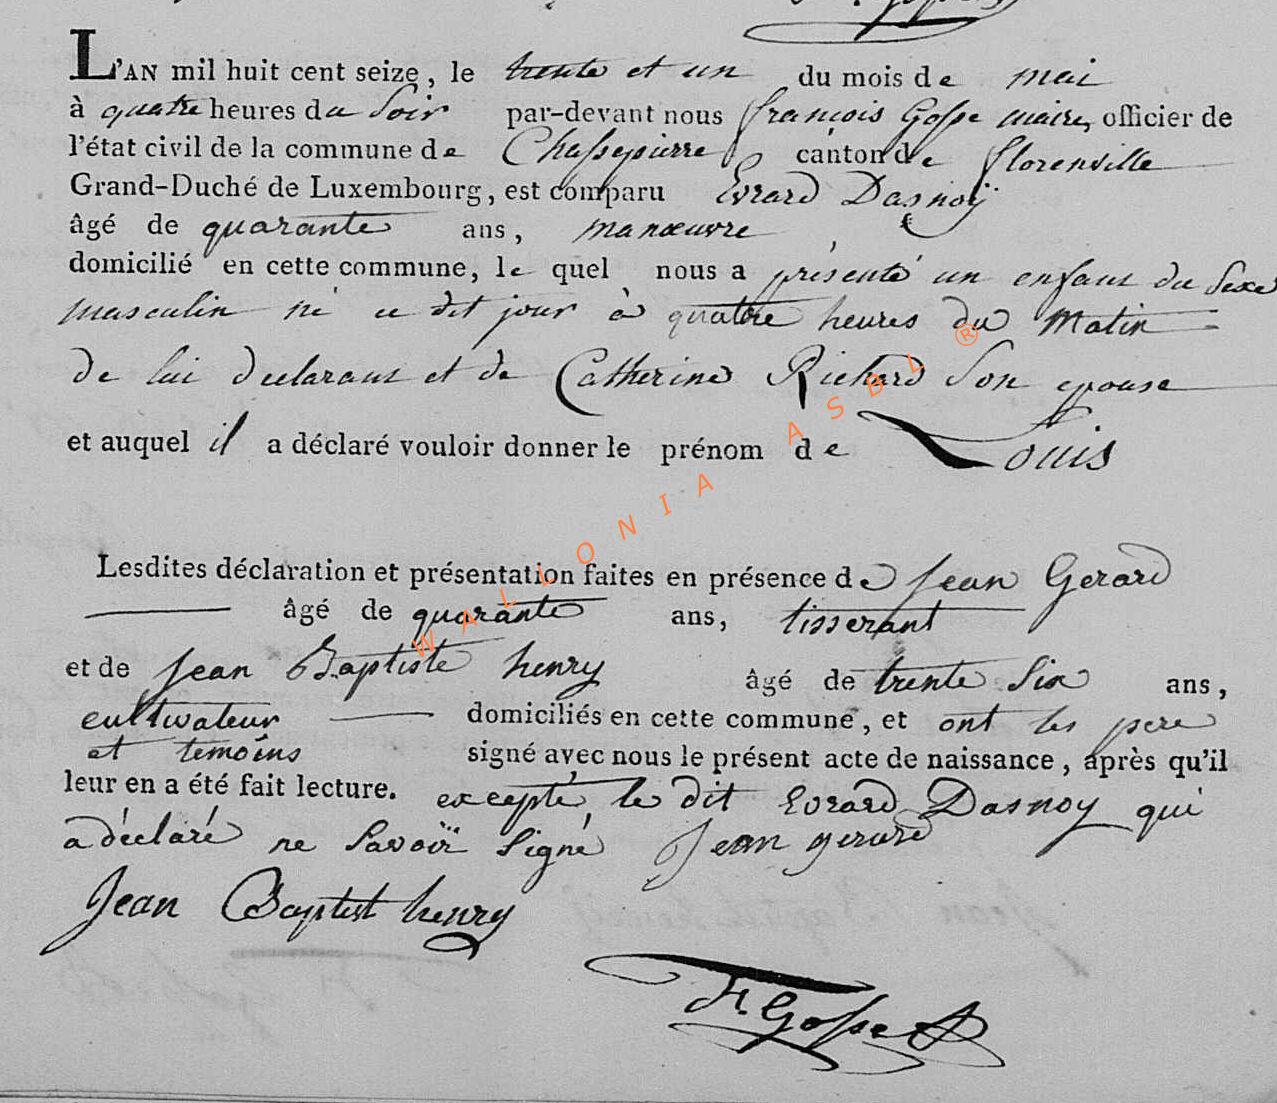 L'AN mil huit cent seize, le trente et un du mois de mai
à quatre heures du Soir par-devant nous françois Gosse maire, officier de
l'état civil de la commune de Chassepierre canton de florenville
Grand-Duché de Luxembourg, est comparu Evrard Dasnoÿ
âgé de quarante ans, manœuvre ,
domicilié en cette commune, le quel nous a présenté un enfant du Sexe
masculin né ce dit jour à quatre heures du Matin
de lui declarant et de Catherine Richard Son epouse
et auquel il a déclaré vouloir donner le prénom de Louis
Lesdites déclaration et présentation faites en présence de Jean Gerard
âgé de quarante ans, tisserant
et de Jean Baptiste henry âgé de trente Six ans,
cultivateur domiciliés en cette commune, et ont les pere
et temoins signé avec nous le présent acte de naissance, après qu'il
leur en a été fait lecture. excepté le dit Evrard Dasnoy qui
a déclaré ne Savoïr Signé Jean gerard
Jean Baptist henry
Fr. Gosse
WALLONIA ASBL ®